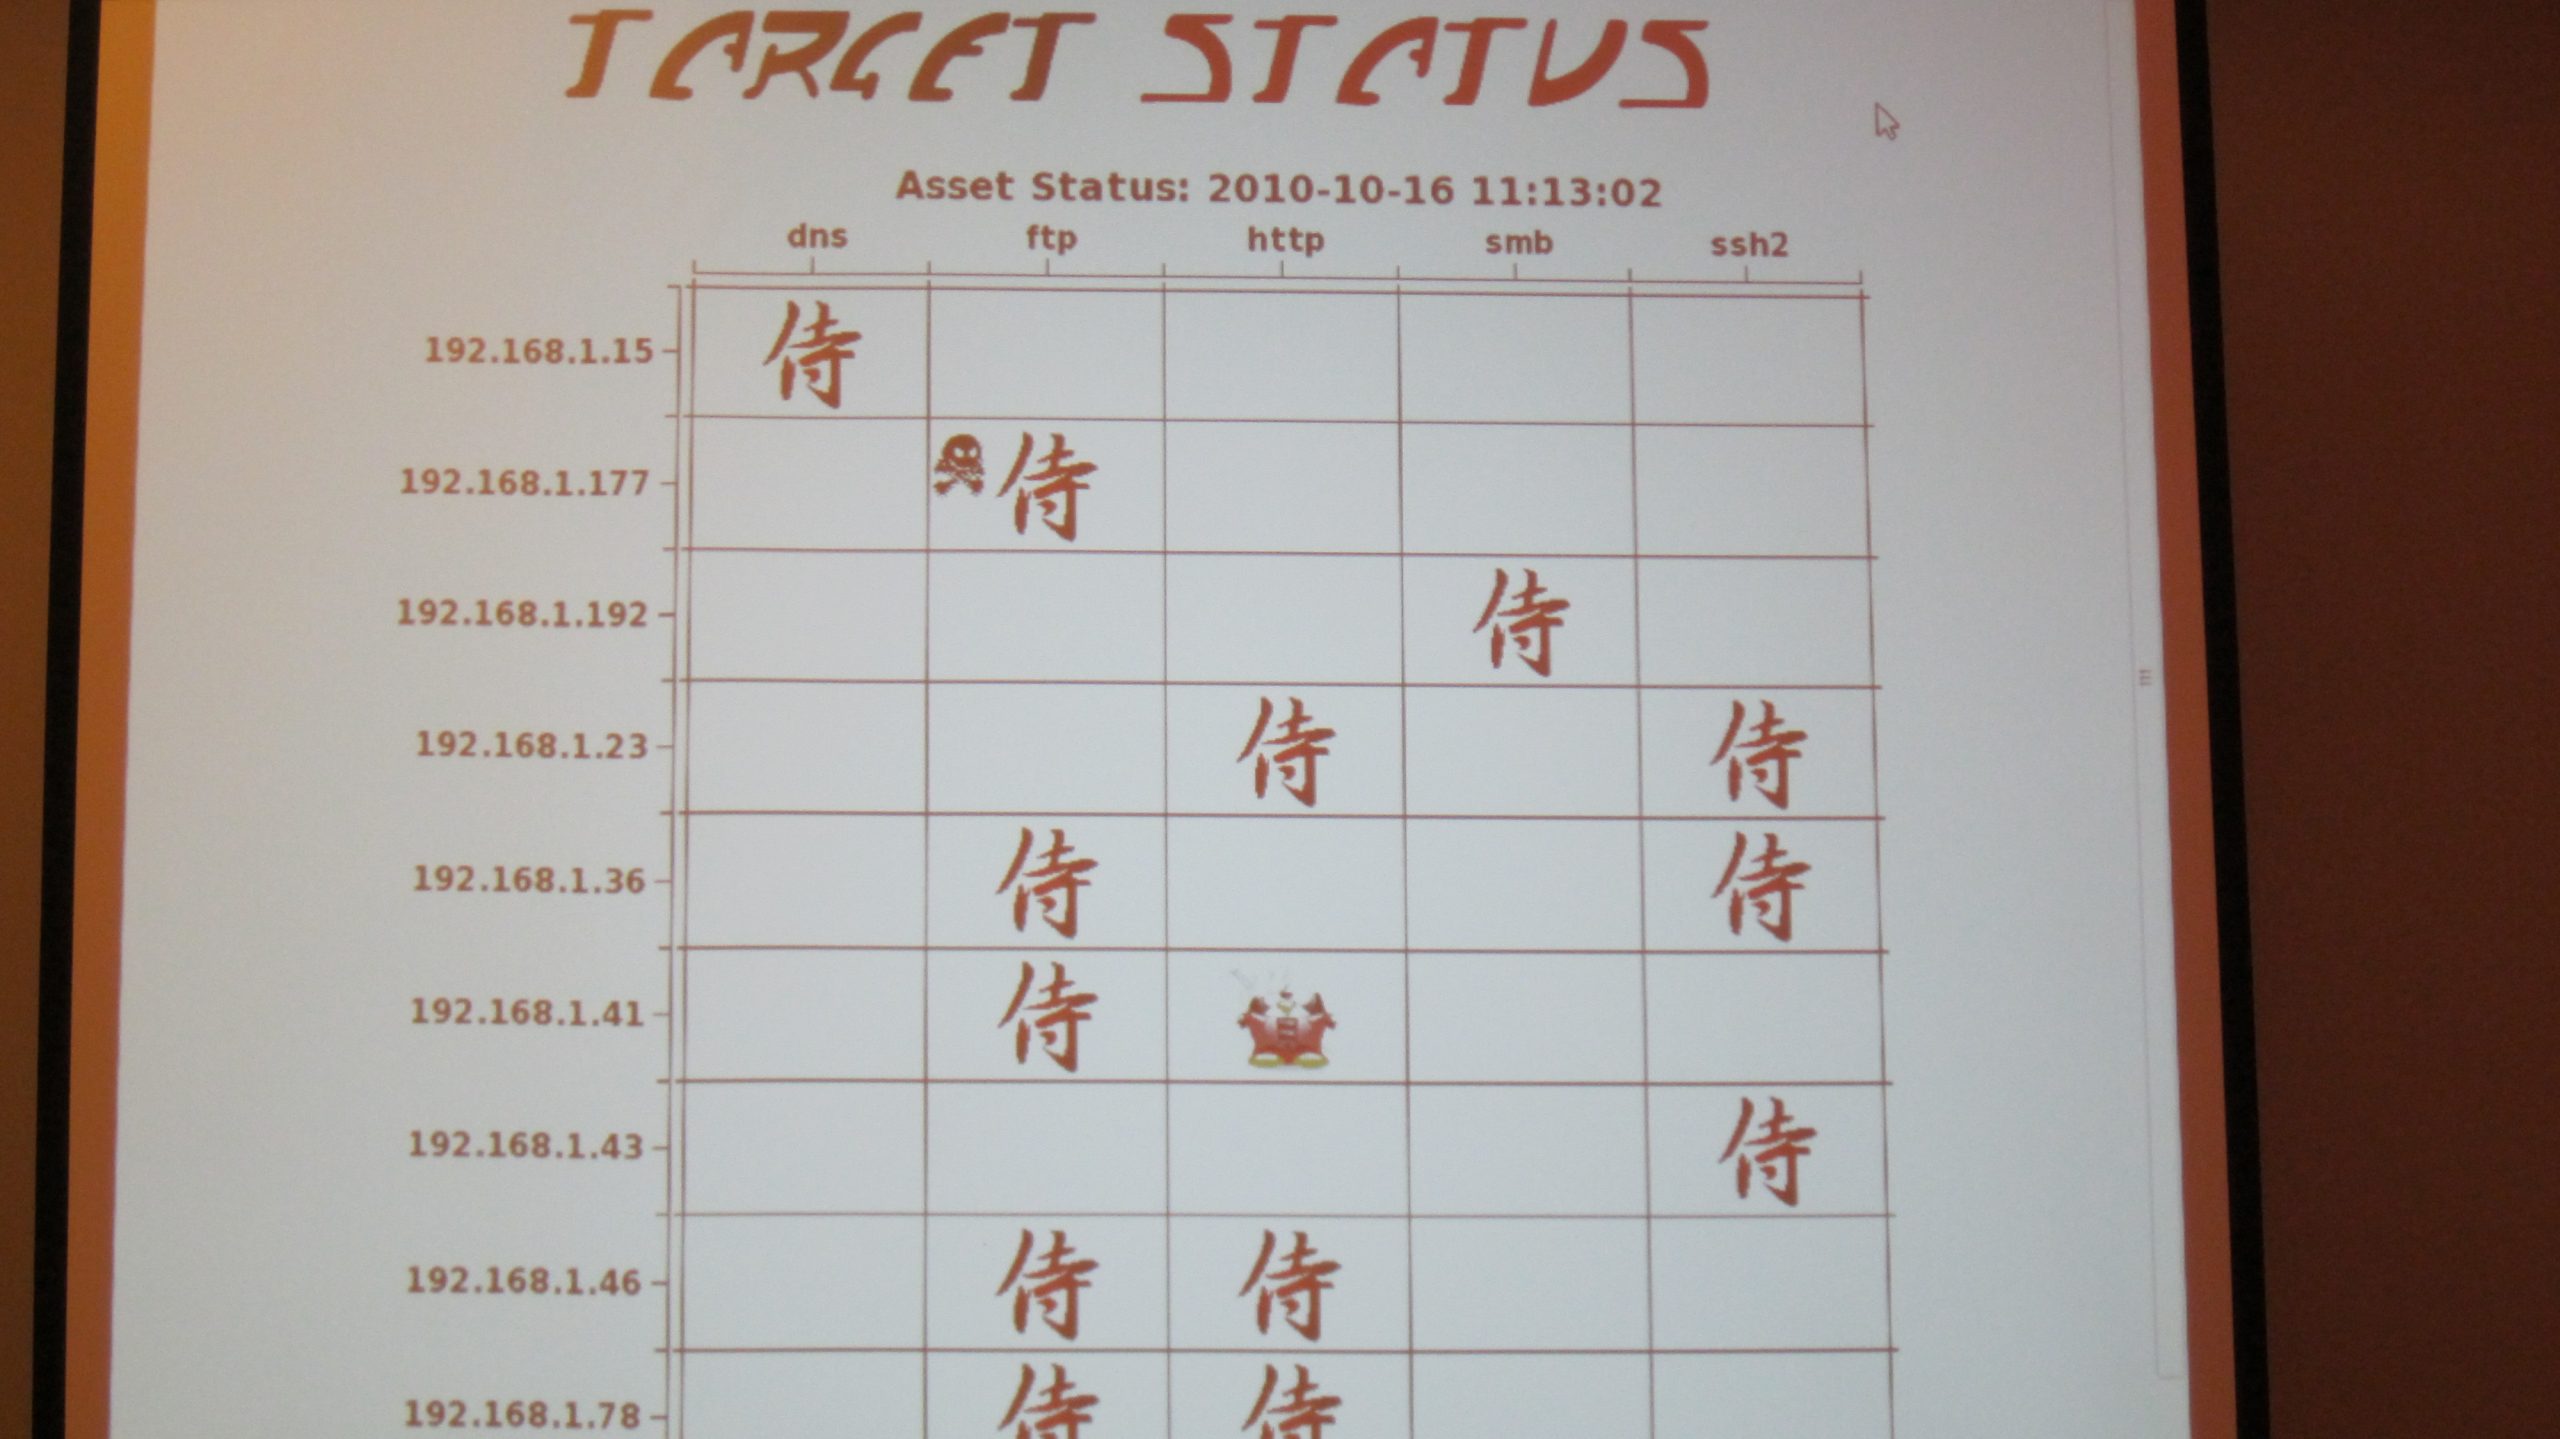 TARGET STATUS
Asset Status: 2010-10-16 11:13:02
dns ftp http smb ssh2
192.168.1.15 侍
192.168.1.177 侍
192.168.1.192 侍
192.168.1.23 侍 侍
192.168.1.36 侍 侍
192.168.1.41 侍
192.168.1.43 侍
192.168.1.46 侍 侍
192.168.1.78 侍 侍